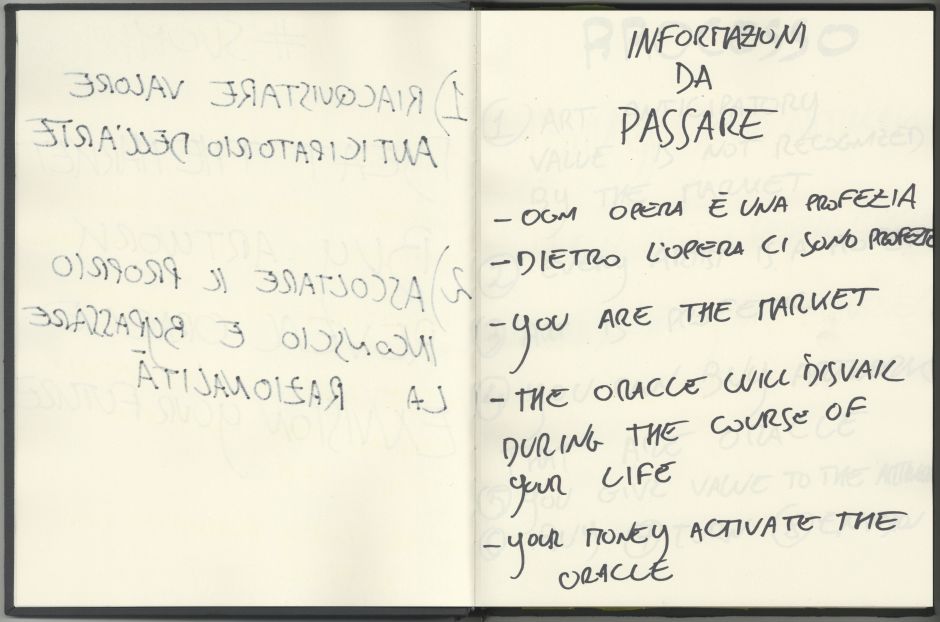 1) RIACQUISTARE VALORE
ANTICIPATORIO DELL'ARTE
2) ASCOLTARE IL PROPRIO
INCONSCIO E BYPASSARE
LA RAZIONALITÀ
INFORMAZIONI
DA
PASSARE
- OGNI OPERA È UNA PROFEZIA
- DIETRO L'OPERA CI SONO PROFEZIE
- YOU ARE THE MARKET
- THE ORACLE WILL DISVAIL
DURING THE COURSE OF
YOUR LIFE
- YOUR MONEY ACTIVATE THE
ORACLE